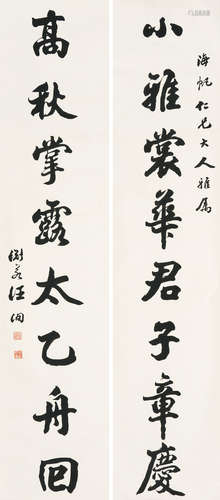 海帆仁兄大人雅属
小雅裳華君子章慶
高秋掌露太乙舟回
汪洵